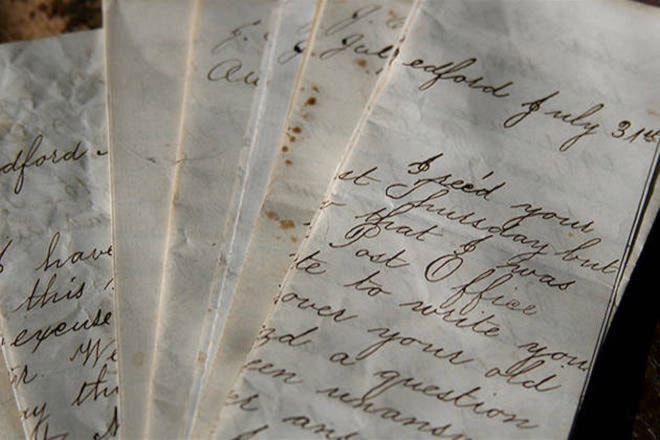 dford
I have
this
excuse
r. We
ay thi
Au
J.
Jul
edford July 31st
I rec'd your
st Thursday but
r that I was
Post Office
te to write you
over your old
zd a question
een unansw
er an